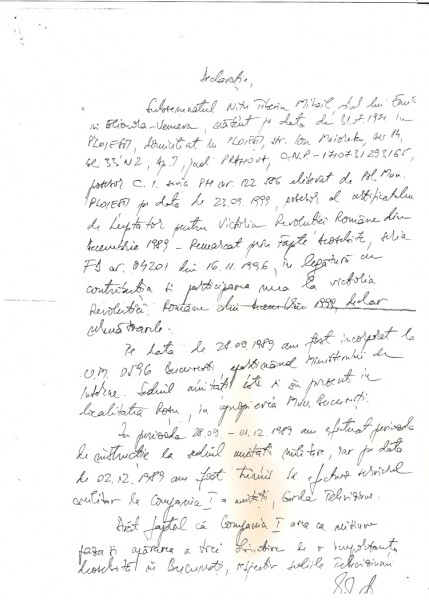 Declarație,
Subsemnatul Nițu Tiberiu Mihail, fiul lui Emil
și Elionola-Venera, născut pe data de 31.07.1971 în
PLOIEȘTI, domiciliat în PLOIEȘTI, str. Ion Maiorescu, nr 14,
bl. 33 N2, Ap. 7, jud. PRAHOVA, C.N.P. - 
posesor C.I. seria PH nr. 122 586 eliberat de Pol. Mun.
PLOIEȘTI pe data de 23.09.1999, posesor al certificatului
de Luptător pentru Victoria Revoluției Române din
Decembrie 1989 - Remarcat prin Fapte Deosebite, seria
nr. 04201 din 16.11.1996, în legătură cu
contribuția și participarea mea la victoria
Revoluției Române din Decembrie 1999, declar
următoarele:
Pe data de 28.09.1989 am fost incorporat la
U.M. 0596 București, aparținând Ministerului de
Interne. Sediul unității este și în prezent în
localitatea Roșu, în apropierea Mun. București.
În perioada 28.09. - 01.12.1989 am efectuat perioada
de instrucție la sediul unității militare, iar pe data
de 02.12.1989 am fost trimis să efectuez serviciul
militar la Compania I a unității, Garda Televiziune.
Dat faptul că Compania I avea ca misiune
paza și apărarea a trei obiective de o importanță
deosebită în București, respectiv sediile Televiziunii